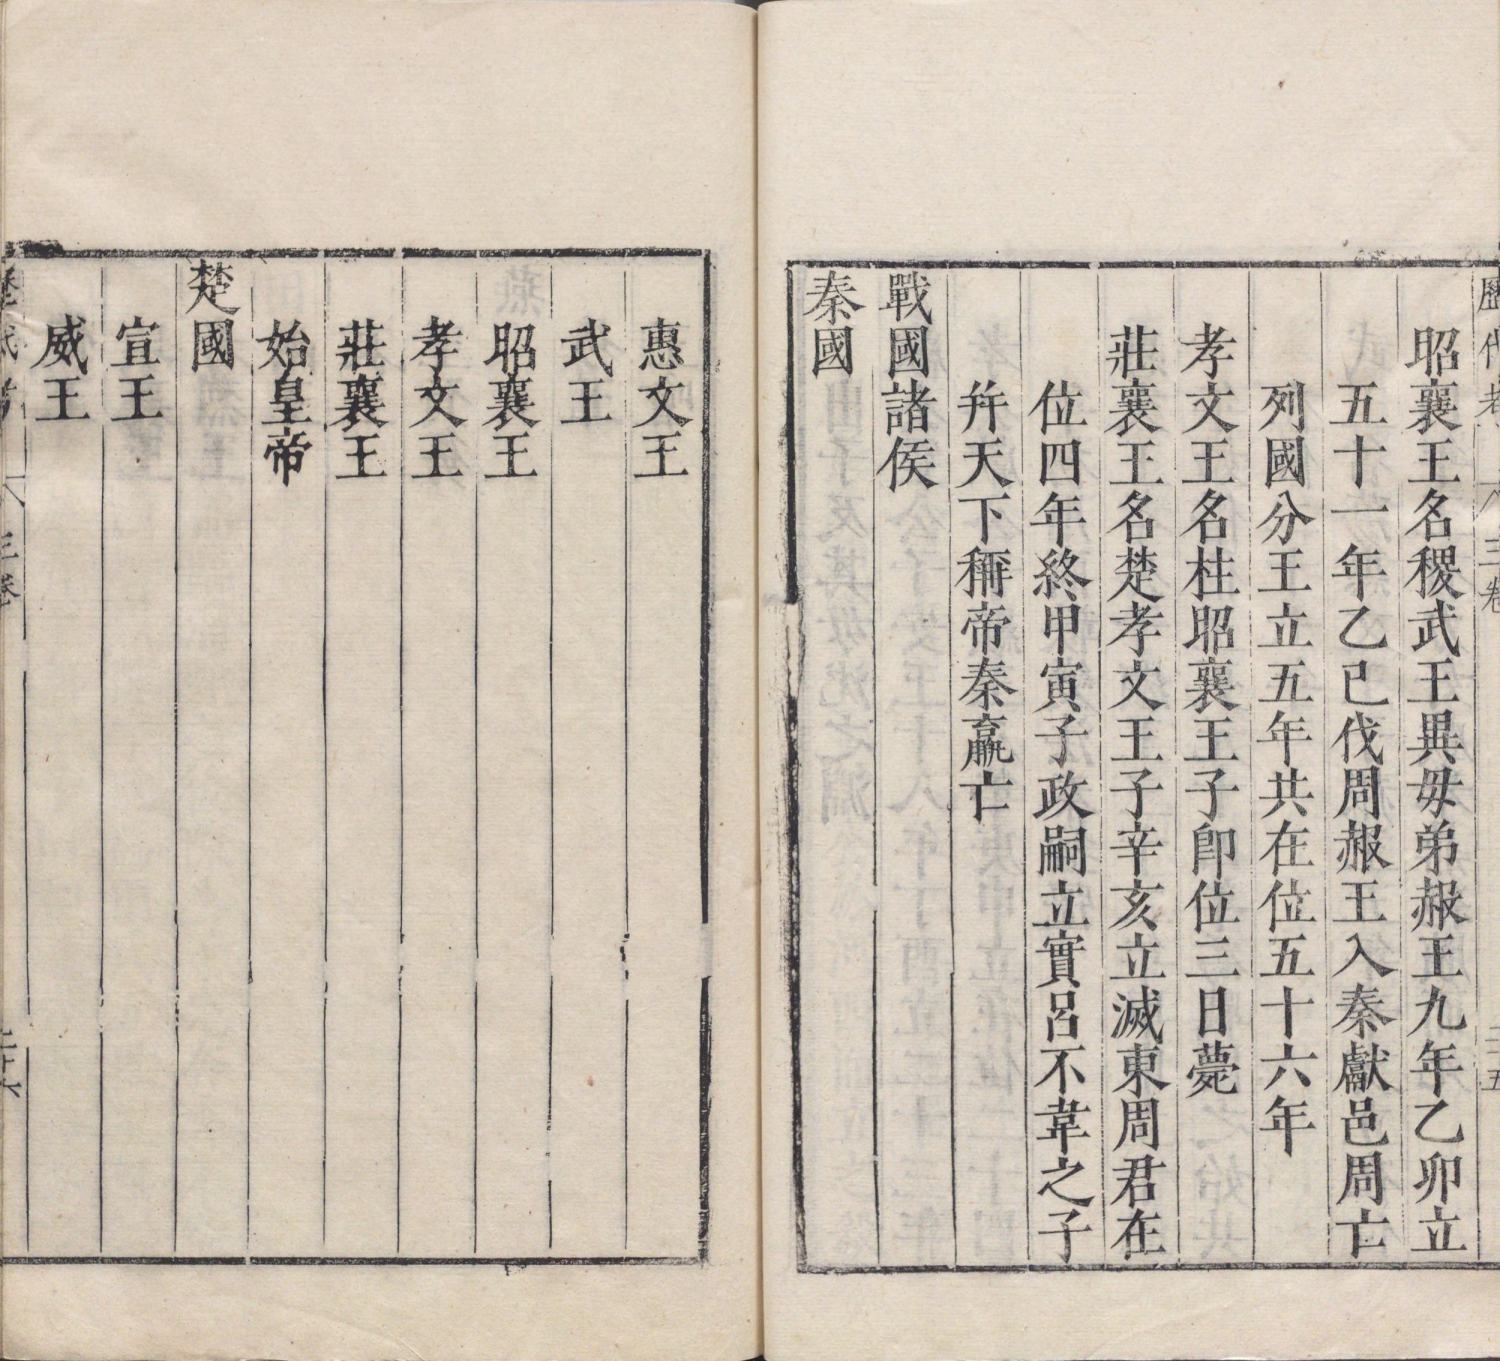 歷代考 三卷 二十五
昭襄王名稷武王異毋弟赧王九年乙卯立
五十一年乙巳伐周赧王入秦獻邑周亡
列國分王立五年共在位五十六年
孝文王名柱昭襄王子卽位三日薨
莊襄王名楚孝文王子辛亥立滅東周君在
位四年終甲寅子政嗣立實呂不韋之子
幷天下稱帝秦嬴亡
戰國諸侯
秦國
惠文王
武王
昭襄王
孝文王
莊襄王
始皇帝
楚國
宣王
威王
歷代考 三卷 二十六